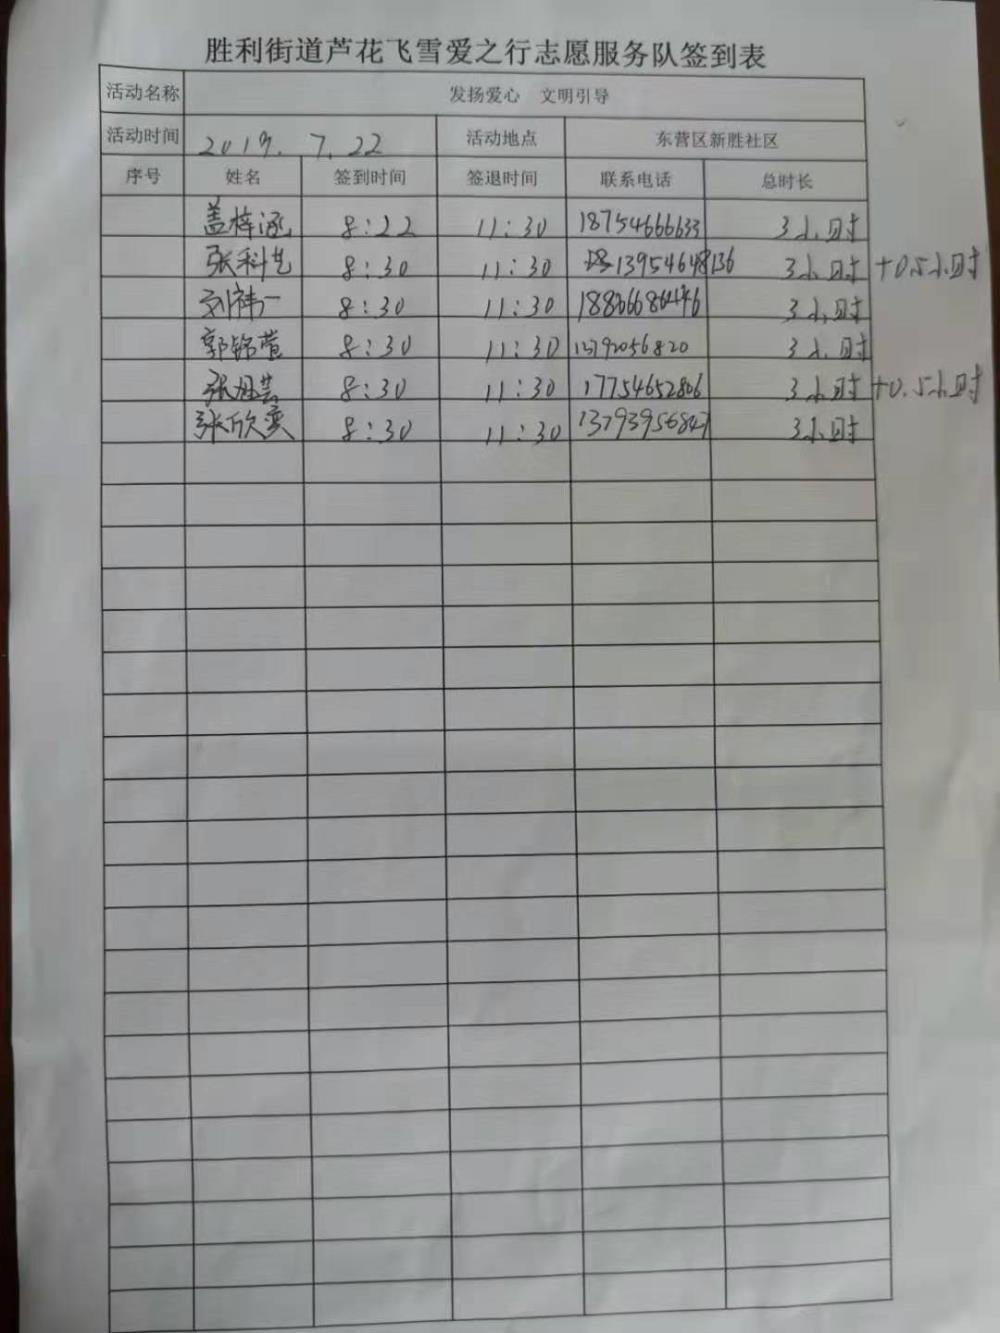 胜利街道芦花飞雪爱之行志愿服务队签到表
活动名称 发扬爱心 文明引导
活动时间 2019.7.22 活动地点 东营区新胜社区
序号 姓名 签到时间 签退时间 联系电话 总时长
盖梓涵 8:22 11:30 18754666633 3小时
张科艺 8:30 11:30 13954648136 3小时 +0.5小时
刘祎一 8:30 11:30 3小时
郭锦萱 8:30 11:30 3小时
张旭芸 8:30 11:30 17754652806 3小时 +0.5小时
张欣奕 8:30 11:30 13793956847 3小时